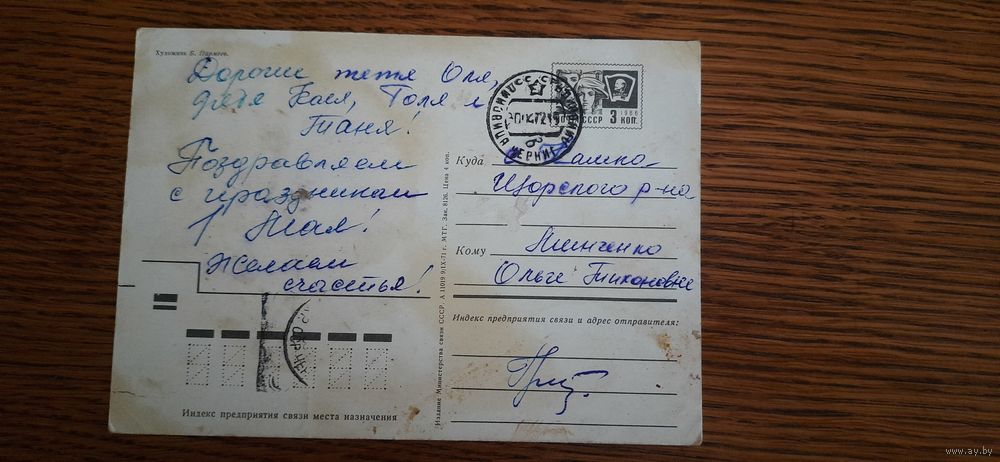 Художник Б. Пармеев.
Дорогие тетя Оля,
дядя Коля, Толя и
Таня!
Поздравляем
с праздником
1 Мая!
Желаем
счастья!
Индекс предприятия связи места назначения
Издание Министерства связи СССР. А 11019 9/IX-71 г. МТГ. Зак. 8126. Цена 4 коп.
1966
ПОЧТА СССР 3 КОП.
Куда
Щорского р-на
Кому Яшченко
Ольге Тихоновне
Индекс предприятия связи и адрес отправителя:
www.ay.by